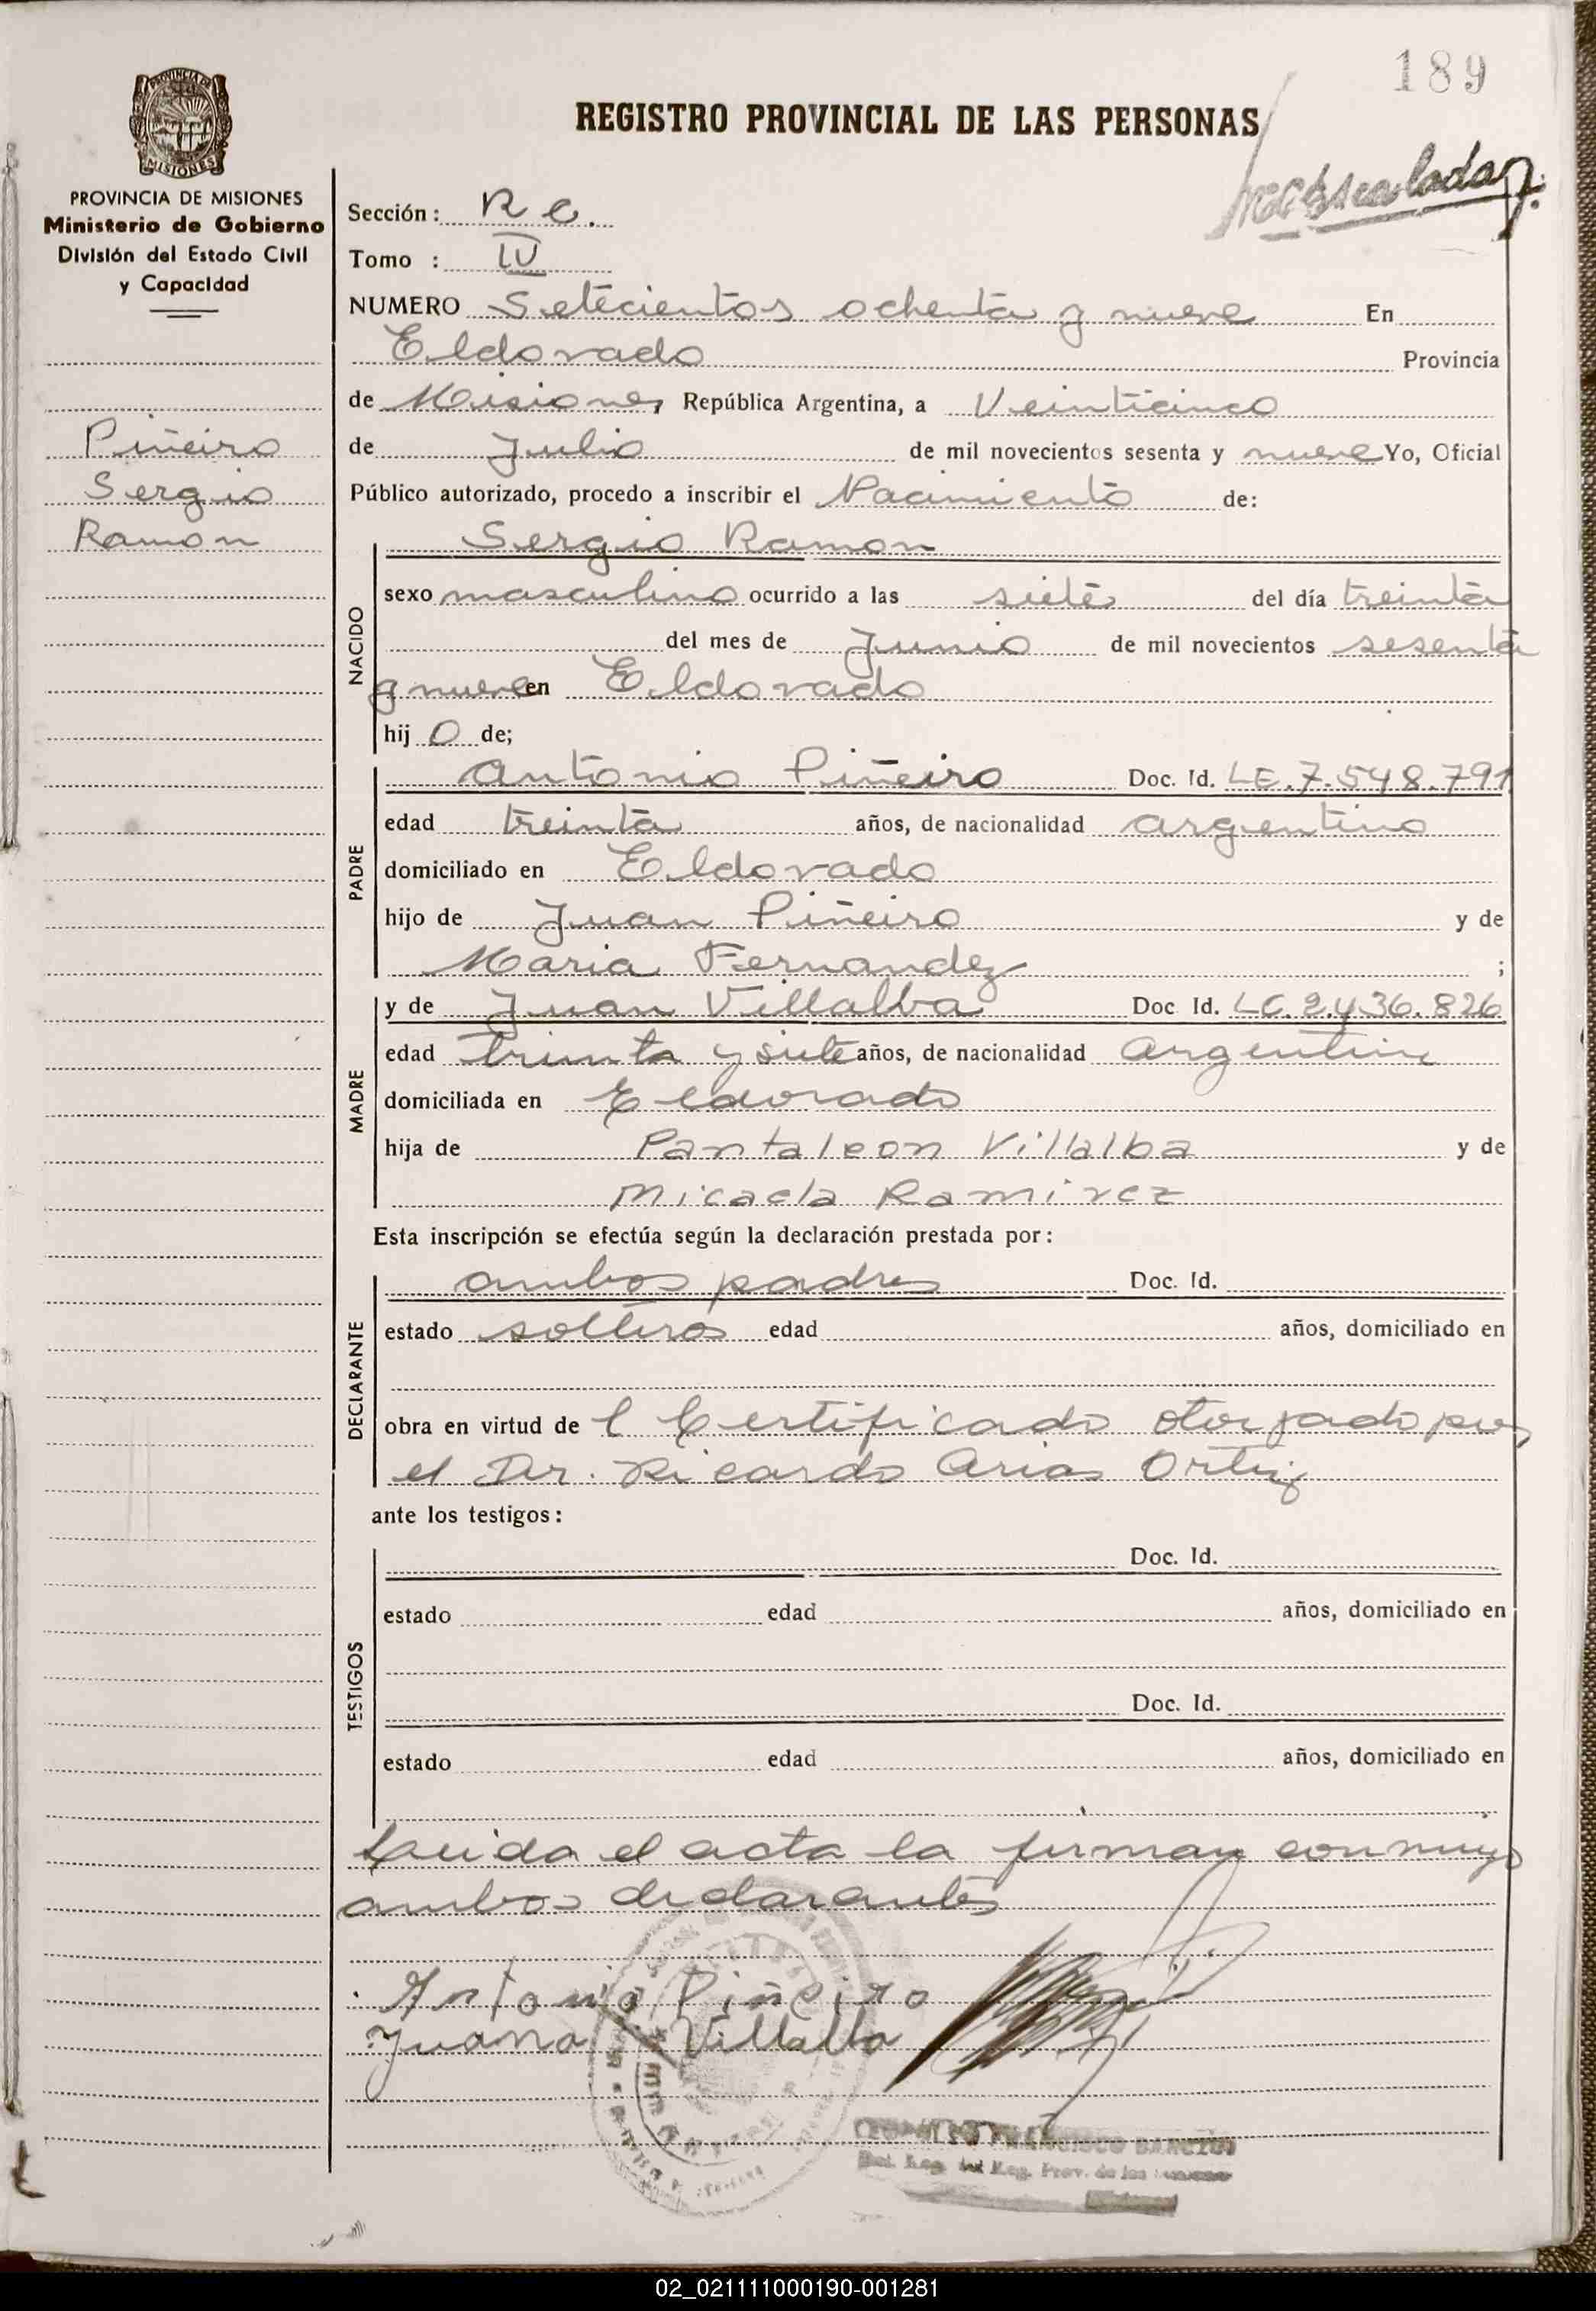 189
REGISTRO PROVINCIAL DE LAS PERSONAS
PROVINCIA DE MISIONES
Ministerio de Gobierno
División del Estado Civil
y Capacidad
Piñeiro
Sergio
Ramon
Sección: R e.
Tomo : IV
NUMERO Setecientos ochenta y nueve En
Eldorado Provincia
de Misiones República Argentina, a Veinticinco
de Julio de mil novecientos sesenta y nueve Yo, Oficial
Público autorizado, procedo a inscribir el Nacimiento de:
Sergio Ramon
NACIDO
sexo masculino ocurrido a las siete del día treinta
del mes de Junio de mil novecientos sesenta
y nueve en Eldorado
hij o de;
PADRE
Antonio Piñeiro Doc. Id. LE.7.548.791
edad treinta años, de nacionalidad argentino
domiciliado en Eldorado
hijo de Juan Piñeiro y de
Maria Fernandez ;
MADRE
y de Juan Villalba Doc Id. LC.2.436.826
edad treinta y siete años, de nacionalidad argentina
domiciliada en Eldorado
hija de Pantaleon Villalba y de
Micaela Ramirez
Esta inscripción se efectúa según la declaración prestada por:
DECLARANTE
ambos padres Doc. Id.
estado solteros edad años, domiciliado en
obra en virtud de l Certificado otorgado por
el Dr. Ricardo Arias Ortiz
ante los testigos:
TESTIGOS
Doc. Id.
estado edad años, domiciliado en
Doc. Id.
estado edad años, domiciliado en
Leida el acta la firman conmigo
ambos declarantes
Antonio Piñeiro
Juana Villalba
02_021111000190-001281